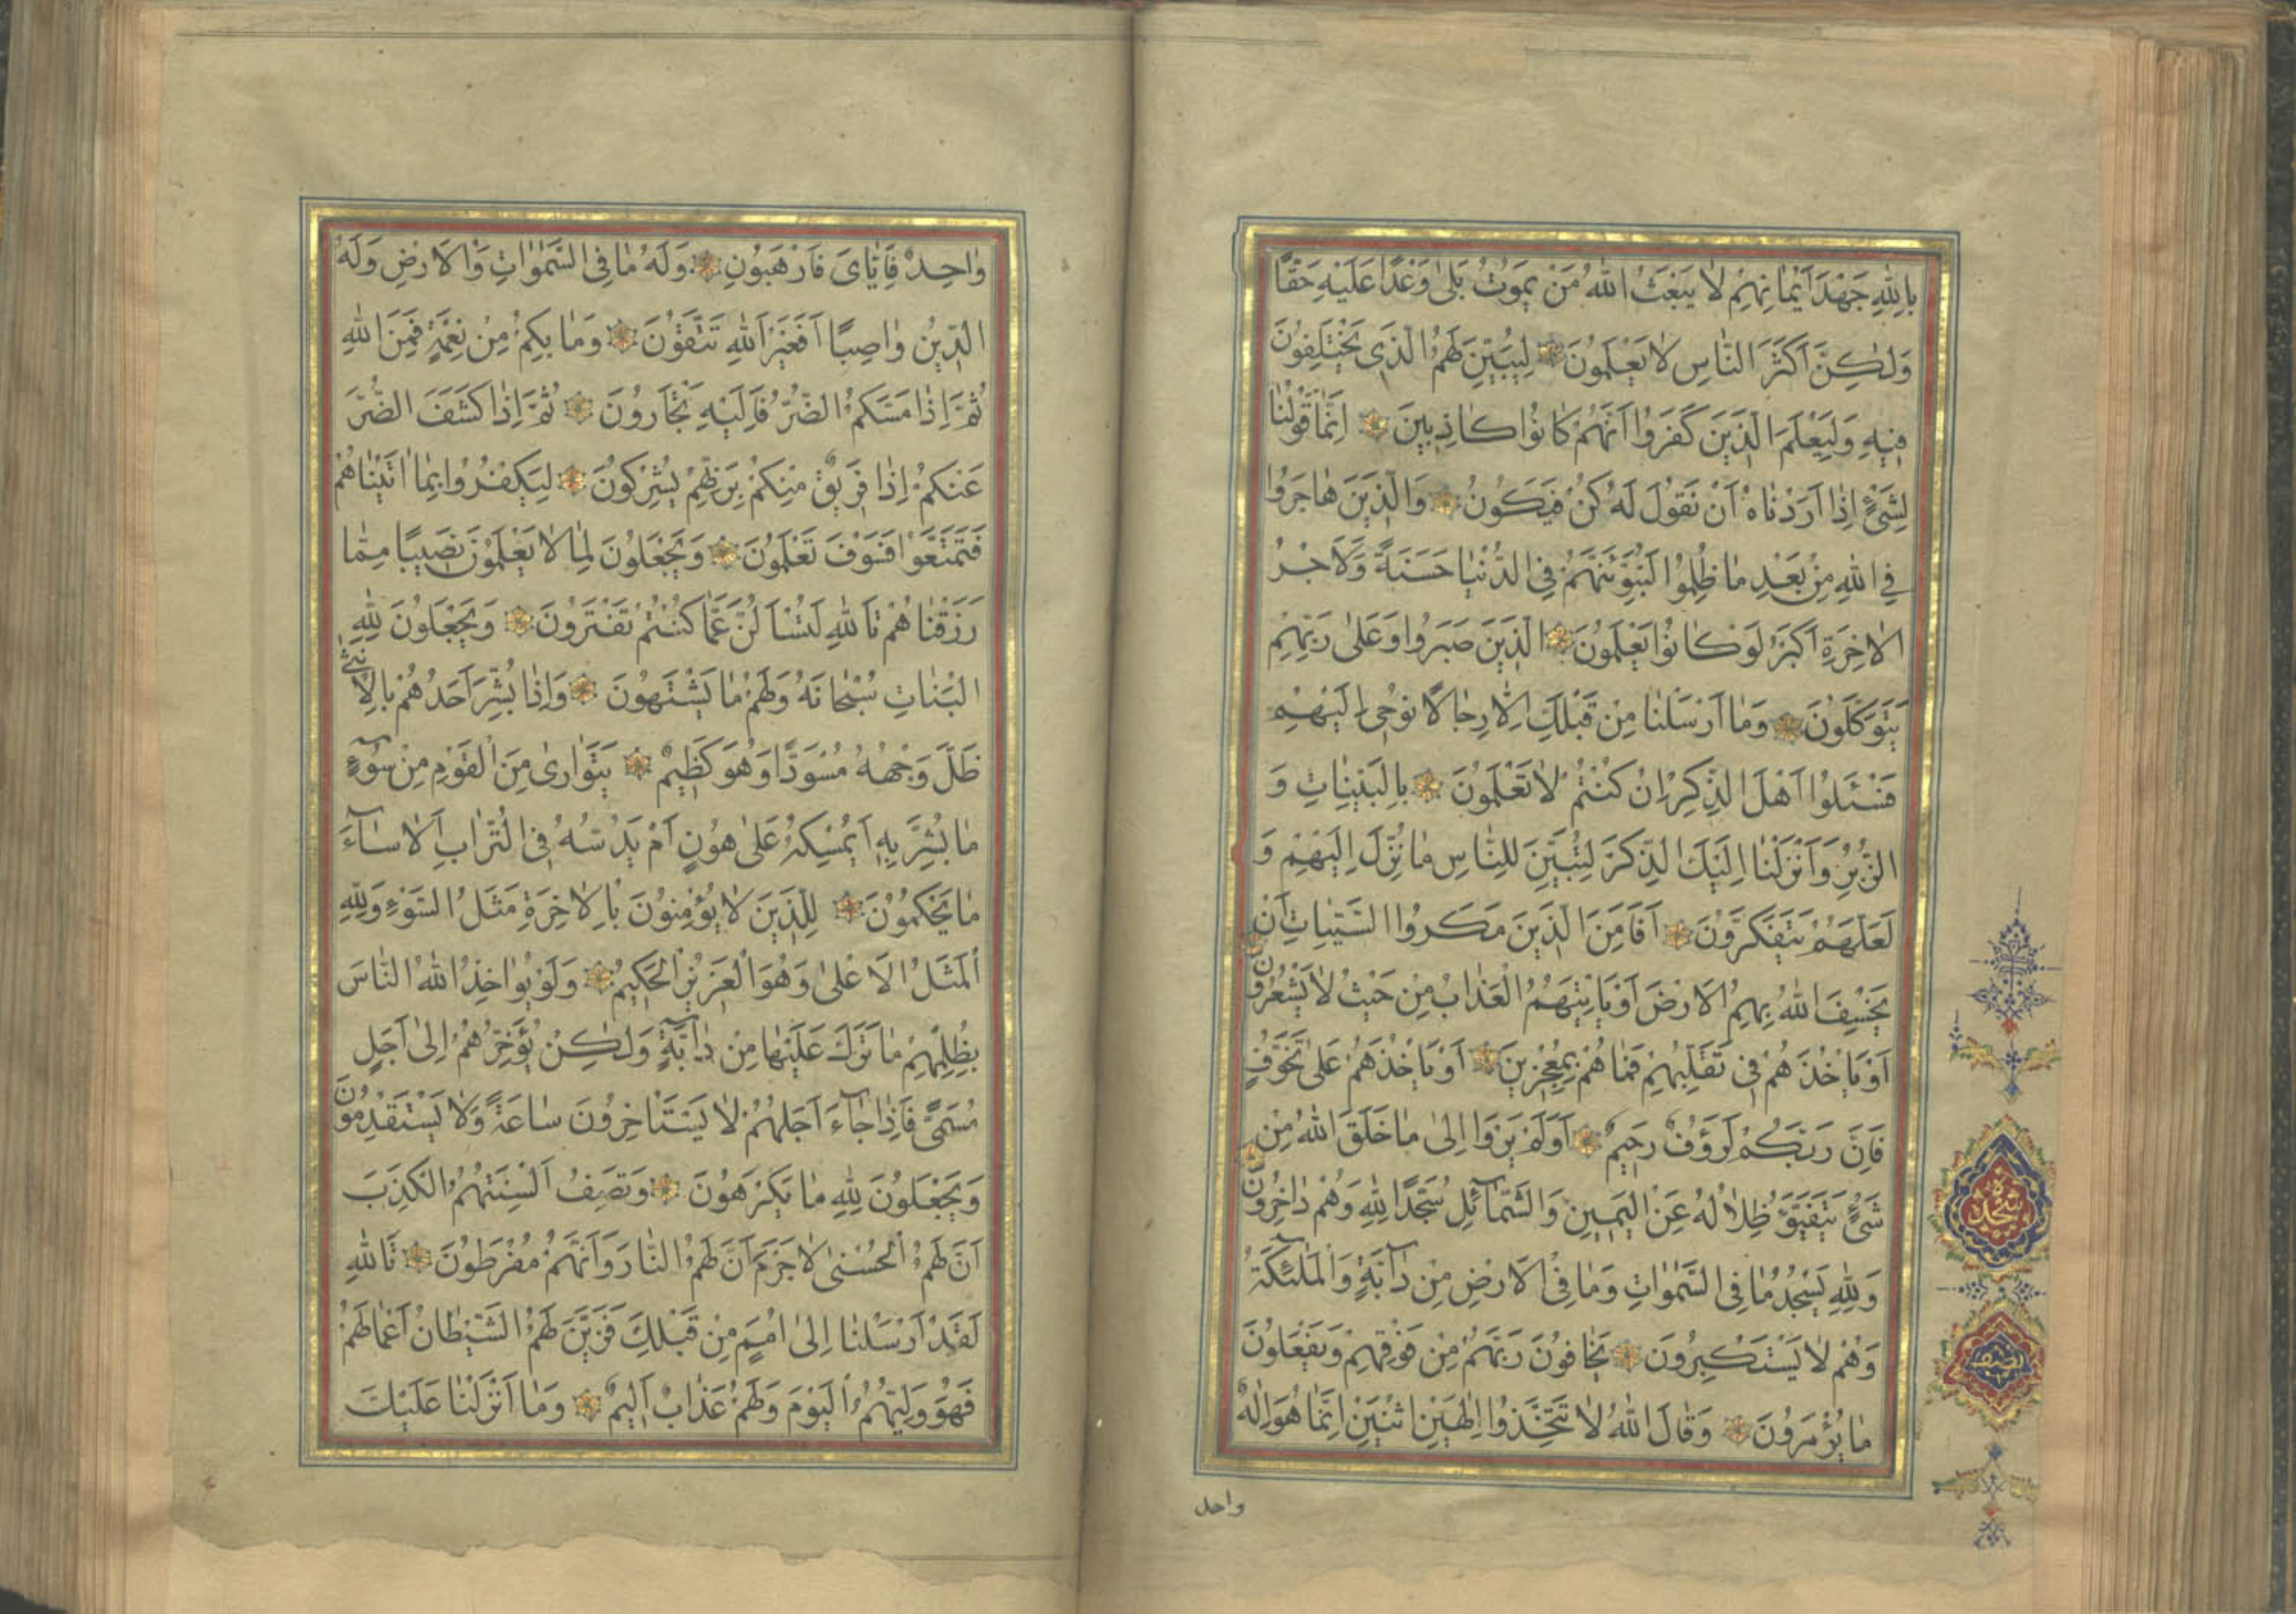 بِاللهِ جَهْدَ اَيْمَانِهِمْ لَا يَبْعَثُ اللهُ مَنْ يَمُوتُ بَلٰى وَعْدًا عَلَيْهِ حَقًّا
وَلٰكِنَّ اَكْثَرَ النَّاسِ لَا يَعْلَمُونَ لِيُبَيِّنَ لَهُمُ الَّذِي يَخْتَلِفُونَ
فِيهِ وَلِيَعْلَمَ الَّذِينَ كَفَرُوا اَنَّهُمْ كَانُوا كَاذِبِينَ اِنَّمَا قَوْلُنَا
لِشَيْءٍ اِذَا اَرَدْنَاهُ اَنْ نَقُولَ لَهُ كُنْ فَيَكُونُ وَالَّذِينَ هَاجَرُوا
فِي اللهِ مِنْ بَعْدِ مَا ظُلِمُوا لَنُبَوِّئَنَّهُمْ فِي الدُّنْيَا حَسَنَةً وَلَاَجْرُ
الْاٰخِرَةِ اَكْبَرُ لَوْ كَانُوا يَعْلَمُونَ الَّذِينَ صَبَرُوا وَعَلٰى رَبِّهِمْ
يَتَوَكَّلُونَ وَمَا اَرْسَلْنَا مِنْ قَبْلِكَ اِلَّا رِجَالًا نُوحِي اِلَيْهِمْ
فَسْـَٔلُوا اَهْلَ الذِّكْرِ اِنْ كُنْتُمْ لَا تَعْلَمُونَ بِالْبَيِّنَاتِ وَ
الزُّبُرِ وَاَنْزَلْنَا اِلَيْكَ الذِّكْرَ لِتُبَيِّنَ لِلنَّاسِ مَا نُزِّلَ اِلَيْهِمْ وَ
لَعَلَّهُمْ يَتَفَكَّرُونَ اَفَاَمِنَ الَّذِينَ مَكَرُوا السَّيِّئَاتِ اَنْ
يَخْسِفَ اللهُ بِهِمُ الْاَرْضَ اَوْ يَاْتِيَهُمُ الْعَذَابُ مِنْ حَيْثُ لَا يَشْعُرُونَ
اَوْ يَاْخُذَهُمْ فِي تَقَلُّبِهِمْ فَمَا هُمْ بِمُعْجِزِينَ اَوْ يَاْخُذَهُمْ عَلٰى تَخَوُّفٍ
فَاِنَّ رَبَّكُمْ لَرَؤُفٌ رَحِيمٌ اَوَلَمْ يَرَوْا اِلٰى مَا خَلَقَ اللهُ مِنْ
شَيْءٍ يَتَفَيَّؤُ ظِلَالُهُ عَنِ الْيَمِينِ وَالشَّمَآئِلِ سُجَّدًا لِلهِ وَهُمْ دَاخِرُونَ
وَلِلهِ يَسْجُدُ مَا فِي السَّمٰوَاتِ وَمَا فِي الْاَرْضِ مِنْ دَآبَّةٍ وَالْمَلٰٓئِكَةُ
وَهُمْ لَا يَسْتَكْبِرُونَ يَخَافُونَ رَبَّهُمْ مِنْ فَوْقِهِمْ وَيَفْعَلُونَ
مَا يُؤْمَرُونَ وَقَالَ اللهُ لَا تَتَّخِذُوا اِلٰهَيْنِ اثْنَيْنِ اِنَّمَا هُوَ اِلٰهٌ
واحد
سجده
وَاحِدٌ فَاِيَّايَ فَارْهَبُونِ وَلَهُ مَا فِي السَّمٰوَاتِ وَالْاَرْضِ وَلَهُ
الدِّينُ وَاصِبًا اَفَغَيْرَ اللهِ تَتَّقُونَ وَمَا بِكُمْ مِنْ نِعْمَةٍ فَمِنَ اللهِ
ثُمَّ اِذَا مَسَّكُمُ الضُّرُّ فَاِلَيْهِ تَجْاَرُونَ ثُمَّ اِذَا كَشَفَ الضُّرَّ
عَنْكُمْ اِذَا فَرِيقٌ مِنْكُمْ بِرَبِّهِمْ يُشْرِكُونَ لِيَكْفُرُوا بِمَا اٰتَيْنَاهُمْ
فَتَمَتَّعُوا فَسَوْفَ تَعْلَمُونَ وَيَجْعَلُونَ لِمَا لَا يَعْلَمُونَ نَصِيبًا مِمَّا
رَزَقْنَاهُمْ تَاللهِ لَتُسْاَلُنَّ عَمَّا كُنْتُمْ تَفْتَرُونَ وَيَجْعَلُونَ لِلهِ
الْبَنَاتِ سُبْحَانَهُ وَلَهُمْ مَا يَشْتَهُونَ وَاِذَا بُشِّرَ اَحَدُهُمْ بِالْاُنْثٰى
ظَلَّ وَجْهُهُ مُسْوَدًّا وَهُوَ كَظِيمٌ يَتَوَارٰى مِنَ الْقَوْمِ مِنْ سُوٓءِ
مَا بُشِّرَ بِهِ اَيُمْسِكُهُ عَلٰى هُونٍ اَمْ يَدُسُّهُ فِي التُّرَابِ اَلَا سَآءَ
مَا يَحْكُمُونَ لِلَّذِينَ لَا يُؤْمِنُونَ بِالْاٰخِرَةِ مَثَلُ السَّوْءِ وَلِلهِ
الْمَثَلُ الْاَعْلٰى وَهُوَ الْعَزِيزُ الْحَكِيمُ وَلَوْ يُؤَاخِذُ اللهُ النَّاسَ
بِظُلْمِهِمْ مَا تَرَكَ عَلَيْهَا مِنْ دَآبَّةٍ وَلٰكِنْ يُؤَخِّرُهُمْ اِلٰى اَجَلٍ
مُسَمًّى فَاِذَا جَآءَ اَجَلُهُمْ لَا يَسْتَاْخِرُونَ سَاعَةً وَلَا يَسْتَقْدِمُونَ
وَيَجْعَلُونَ لِلهِ مَا يَكْرَهُونَ وَتَصِفُ اَلْسِنَتُهُمُ الْكَذِبَ
اَنَّ لَهُمُ الْحُسْنٰى لَا جَرَمَ اَنَّ لَهُمُ النَّارَ وَاَنَّهُمْ مُفْرَطُونَ تَاللهِ
لَقَدْ اَرْسَلْنَا اِلٰى اُمَمٍ مِنْ قَبْلِكَ فَزَيَّنَ لَهُمُ الشَّيْطَانُ اَعْمَالَهُمْ
فَهُوَ وَلِيُّهُمُ الْيَوْمَ وَلَهُمْ عَذَابٌ اَلِيمٌ وَمَا اَنْزَلْنَا عَلَيْكَ